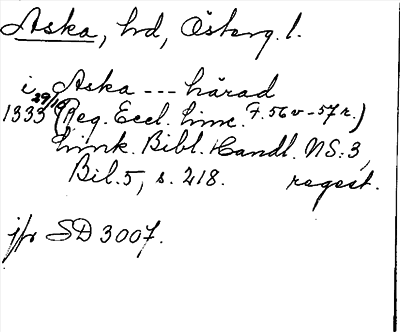 Aska, hd, Österg. l.
i Aska --- härad
1333 29/10 (Reg. Eccl. Linc. F. 56v-57r.)
Link. Bibl. Handl. NS:3,
Bil. 5, s. 218. regest.
jfr SD 3007.